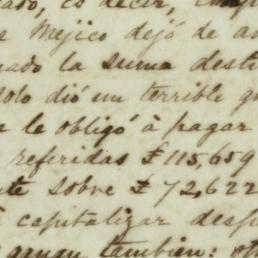 es decir,
e Mejico dejó de
la suma
solo dió un terrible
le obligó à pagar
referidas £115,659
sobre £72,622
capitalizar
tambien: